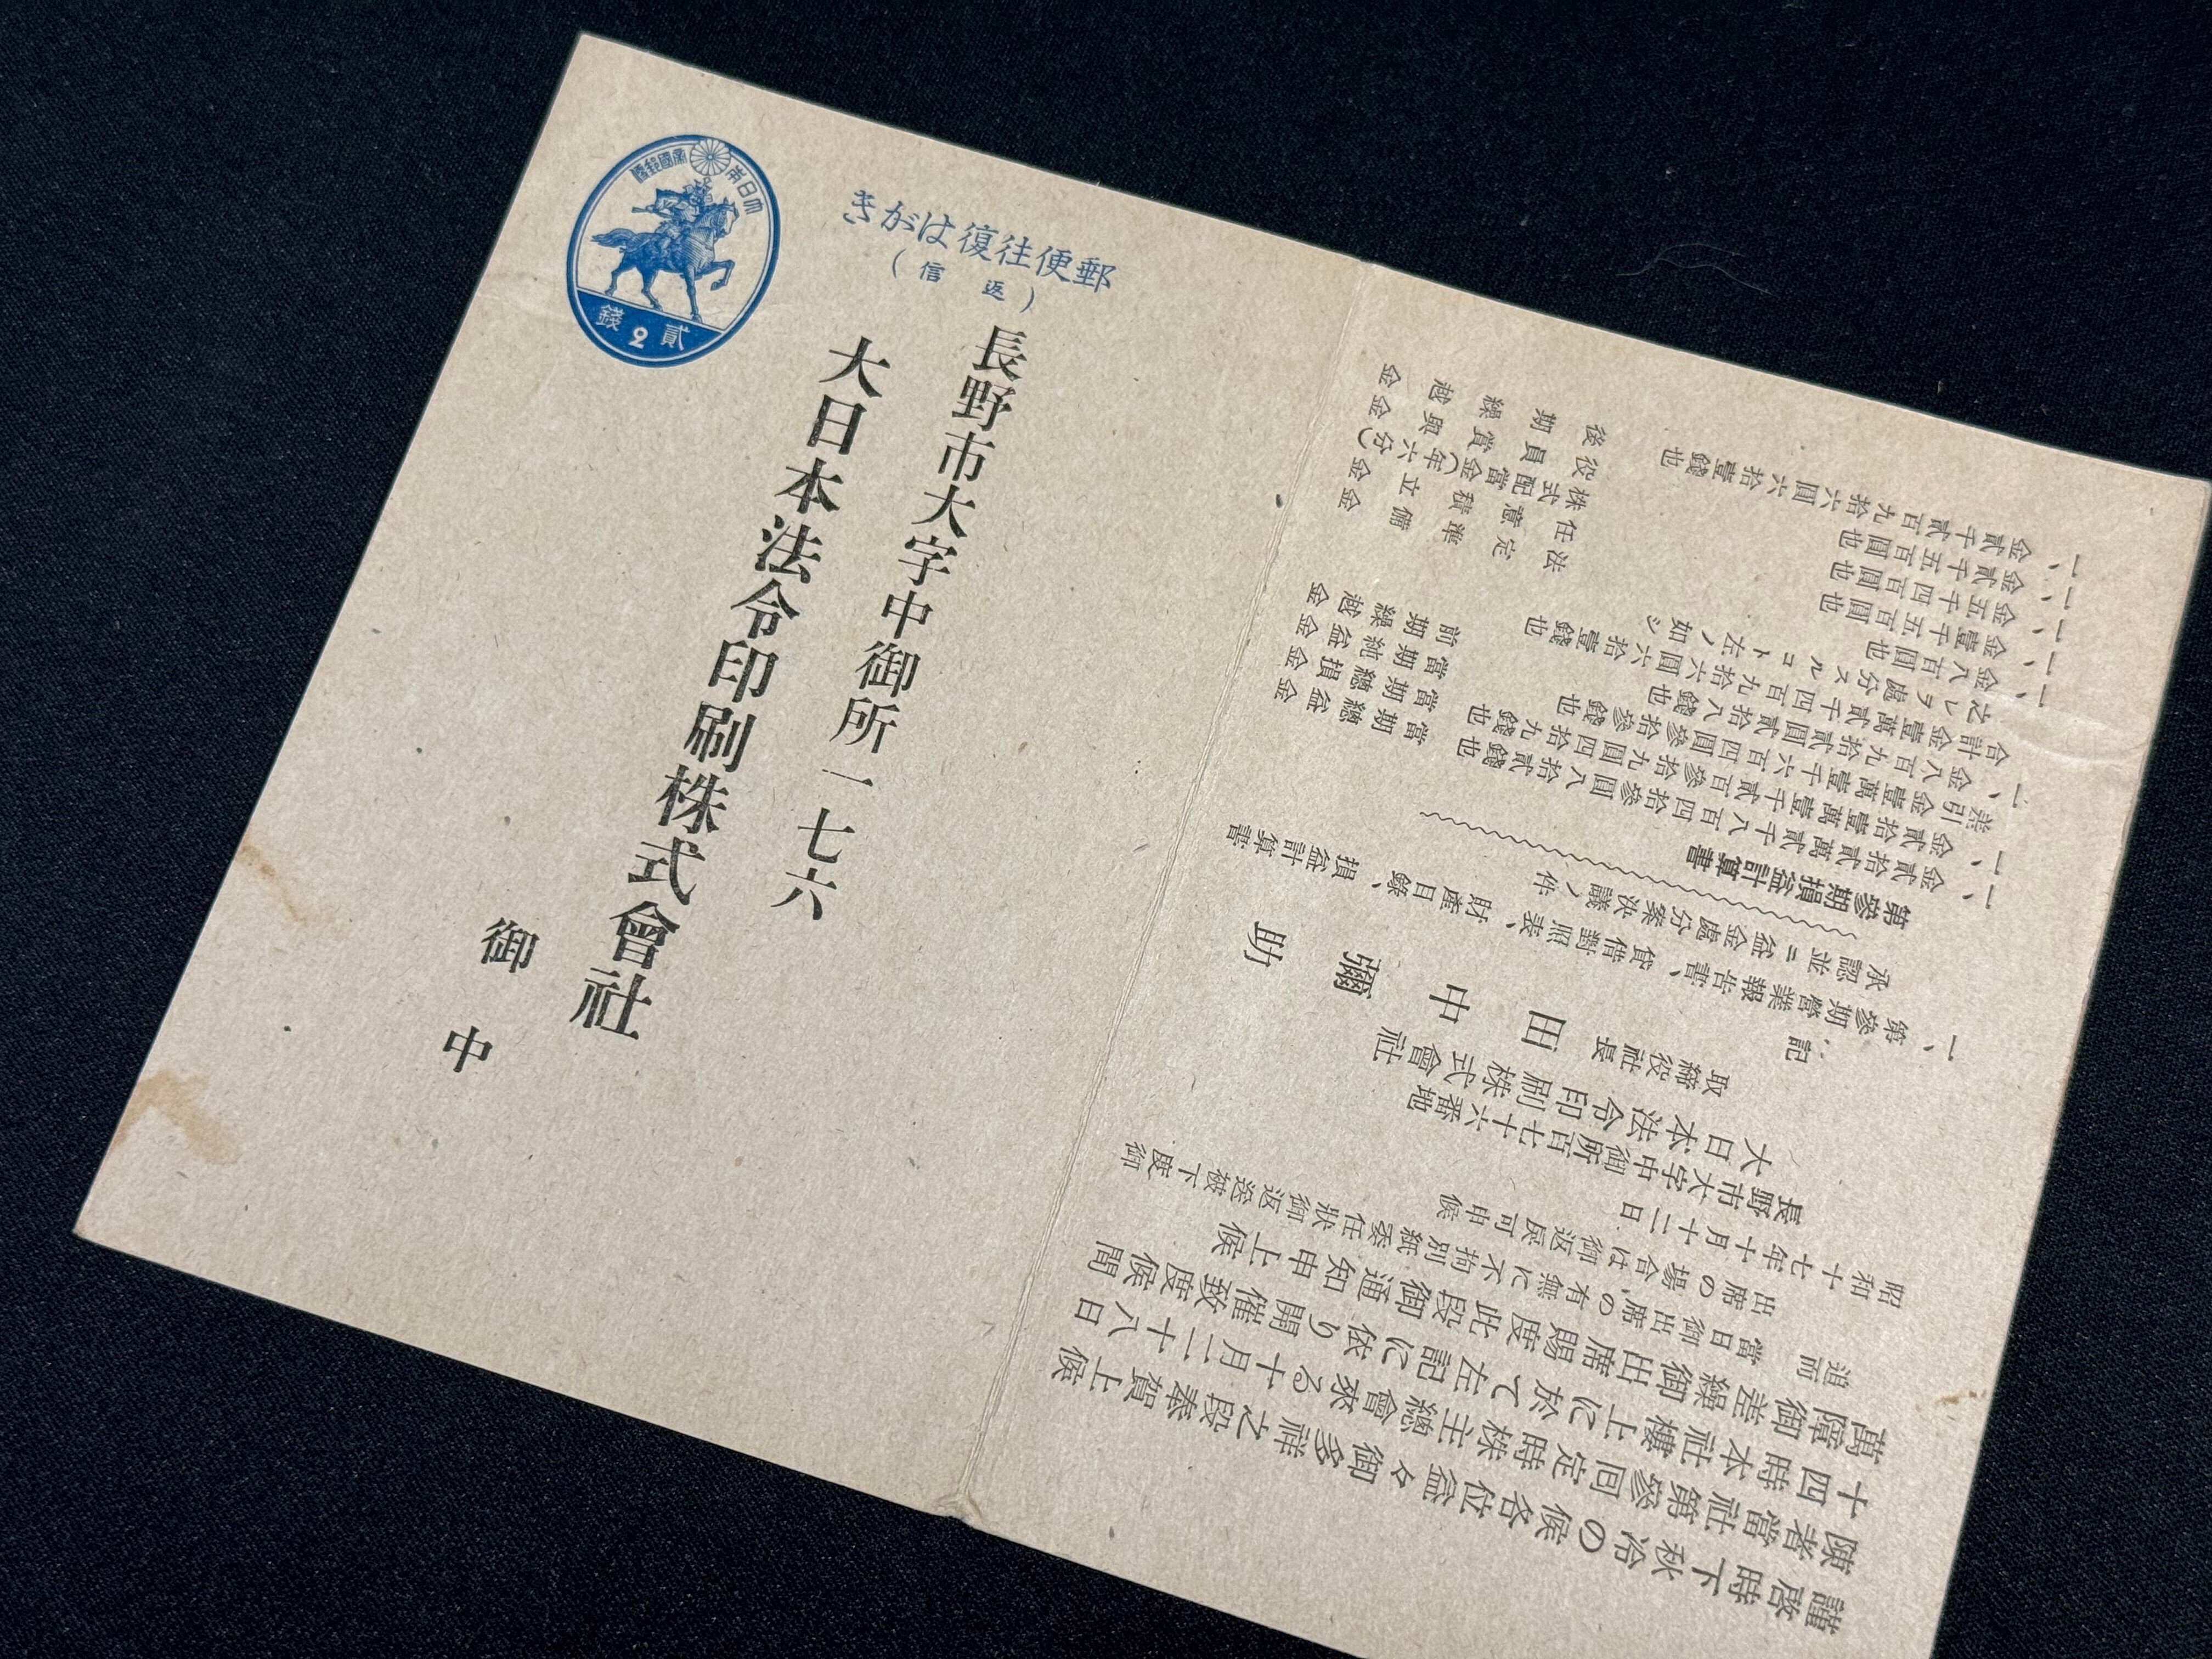 大日本帝國郵便
貳2錢
郵便往復はがき
(返信)
長野市大字中御所一七六
大日本法令印刷株式會社
御中
謹啓時下秋冷の候各位益々御多祥之段奉賀上候
陳者當社第參回定時株主總會來る十月二十八日
十四時本社樓上に於て左記に依り開催致度候間
萬障御差繰御出席賜度此段御通知申上候
追而 當日御出席の有無に不拘別紙委任狀御返送被下度御
出席の場合は御返戾可申候
昭和十七年十月十二日
長野市大字中御所百七十六番地
大日本法令印刷株式會社
取締役社長 田中彌助
記
一、第參期營業報告書、貸借對照表、財產目錄、損益計算書
承認並ニ益金處分案決議ノ件
第參期損益計算書
一、金貳拾貳萬貳千八百四拾參圓八拾貳錢也 當期總益金
一、金貳拾壹萬壹千貳百參拾九圓四拾九錢也 當期總損金
差引金壹萬壹千六百四圓參拾參錢也 當期純益金
一、金八百九拾貳圓貳拾八錢也 前期繰越金
合計金壹萬貳千四百九拾六圓六拾壹錢也
之レヲ處分スルコト左ノ如シ
一、金八百圓也 法定準備金
一、金壹千五百圓也 任意積立金
一、金五千四百圓也 株式配當金(年六分)
一、金貳千五百圓也 役員賞與金
一、金貳千貳百九拾六圓六拾壹錢也 後期繰越金